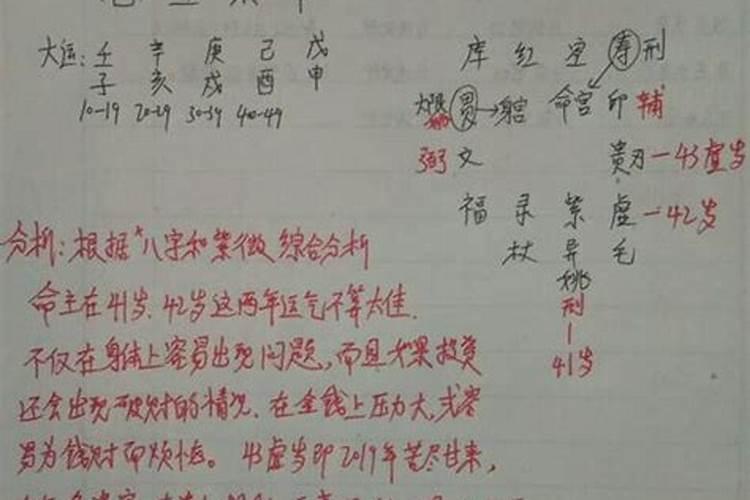 大运: 壬 辛 庚 己 戊
子 亥 戌 酉 申
10-19 20-29 30-39 40-49
库 红 空 寿 刑
大限 贵→ 命宫 印 辅
弼 文 贵刃-43虚岁
福 录 紫 虚-42岁
杖 异 毛
姚
刑
41岁
分析: 根据"八字和紫微综合分析
命主在41岁、42岁这两年运气不算太佳.
不仅在身体上容易出现问题,而且如果投资
还会出现破财的情况、在金钱上压力大,或容
易为钱财而烦恼。43虚岁即2019年苦尽甘来,